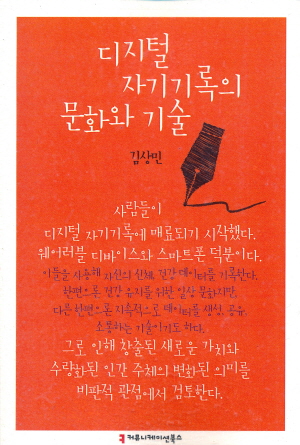 디지털
자기기록의
문화와 기술
김상민
사람들이
디지털 자기기록에 매료되기 시작했다.
웨어러블 디바이스와 스마트폰 덕분이다.
이들을 사용해 자신의 신체, 건강 데이터를 기록한다.
한편으론 건강 유지를 위한 일상 문화지만,
다른 한편으론 지속적으로 데이터를 생성, 공유,
소통하는 기술이기도 하다.
그로 인해 창출된 새로운 가치와
수량화된 인간 주체의 변화된 의미를
비판적 관점에서 검토한다.
커뮤니케이션북스